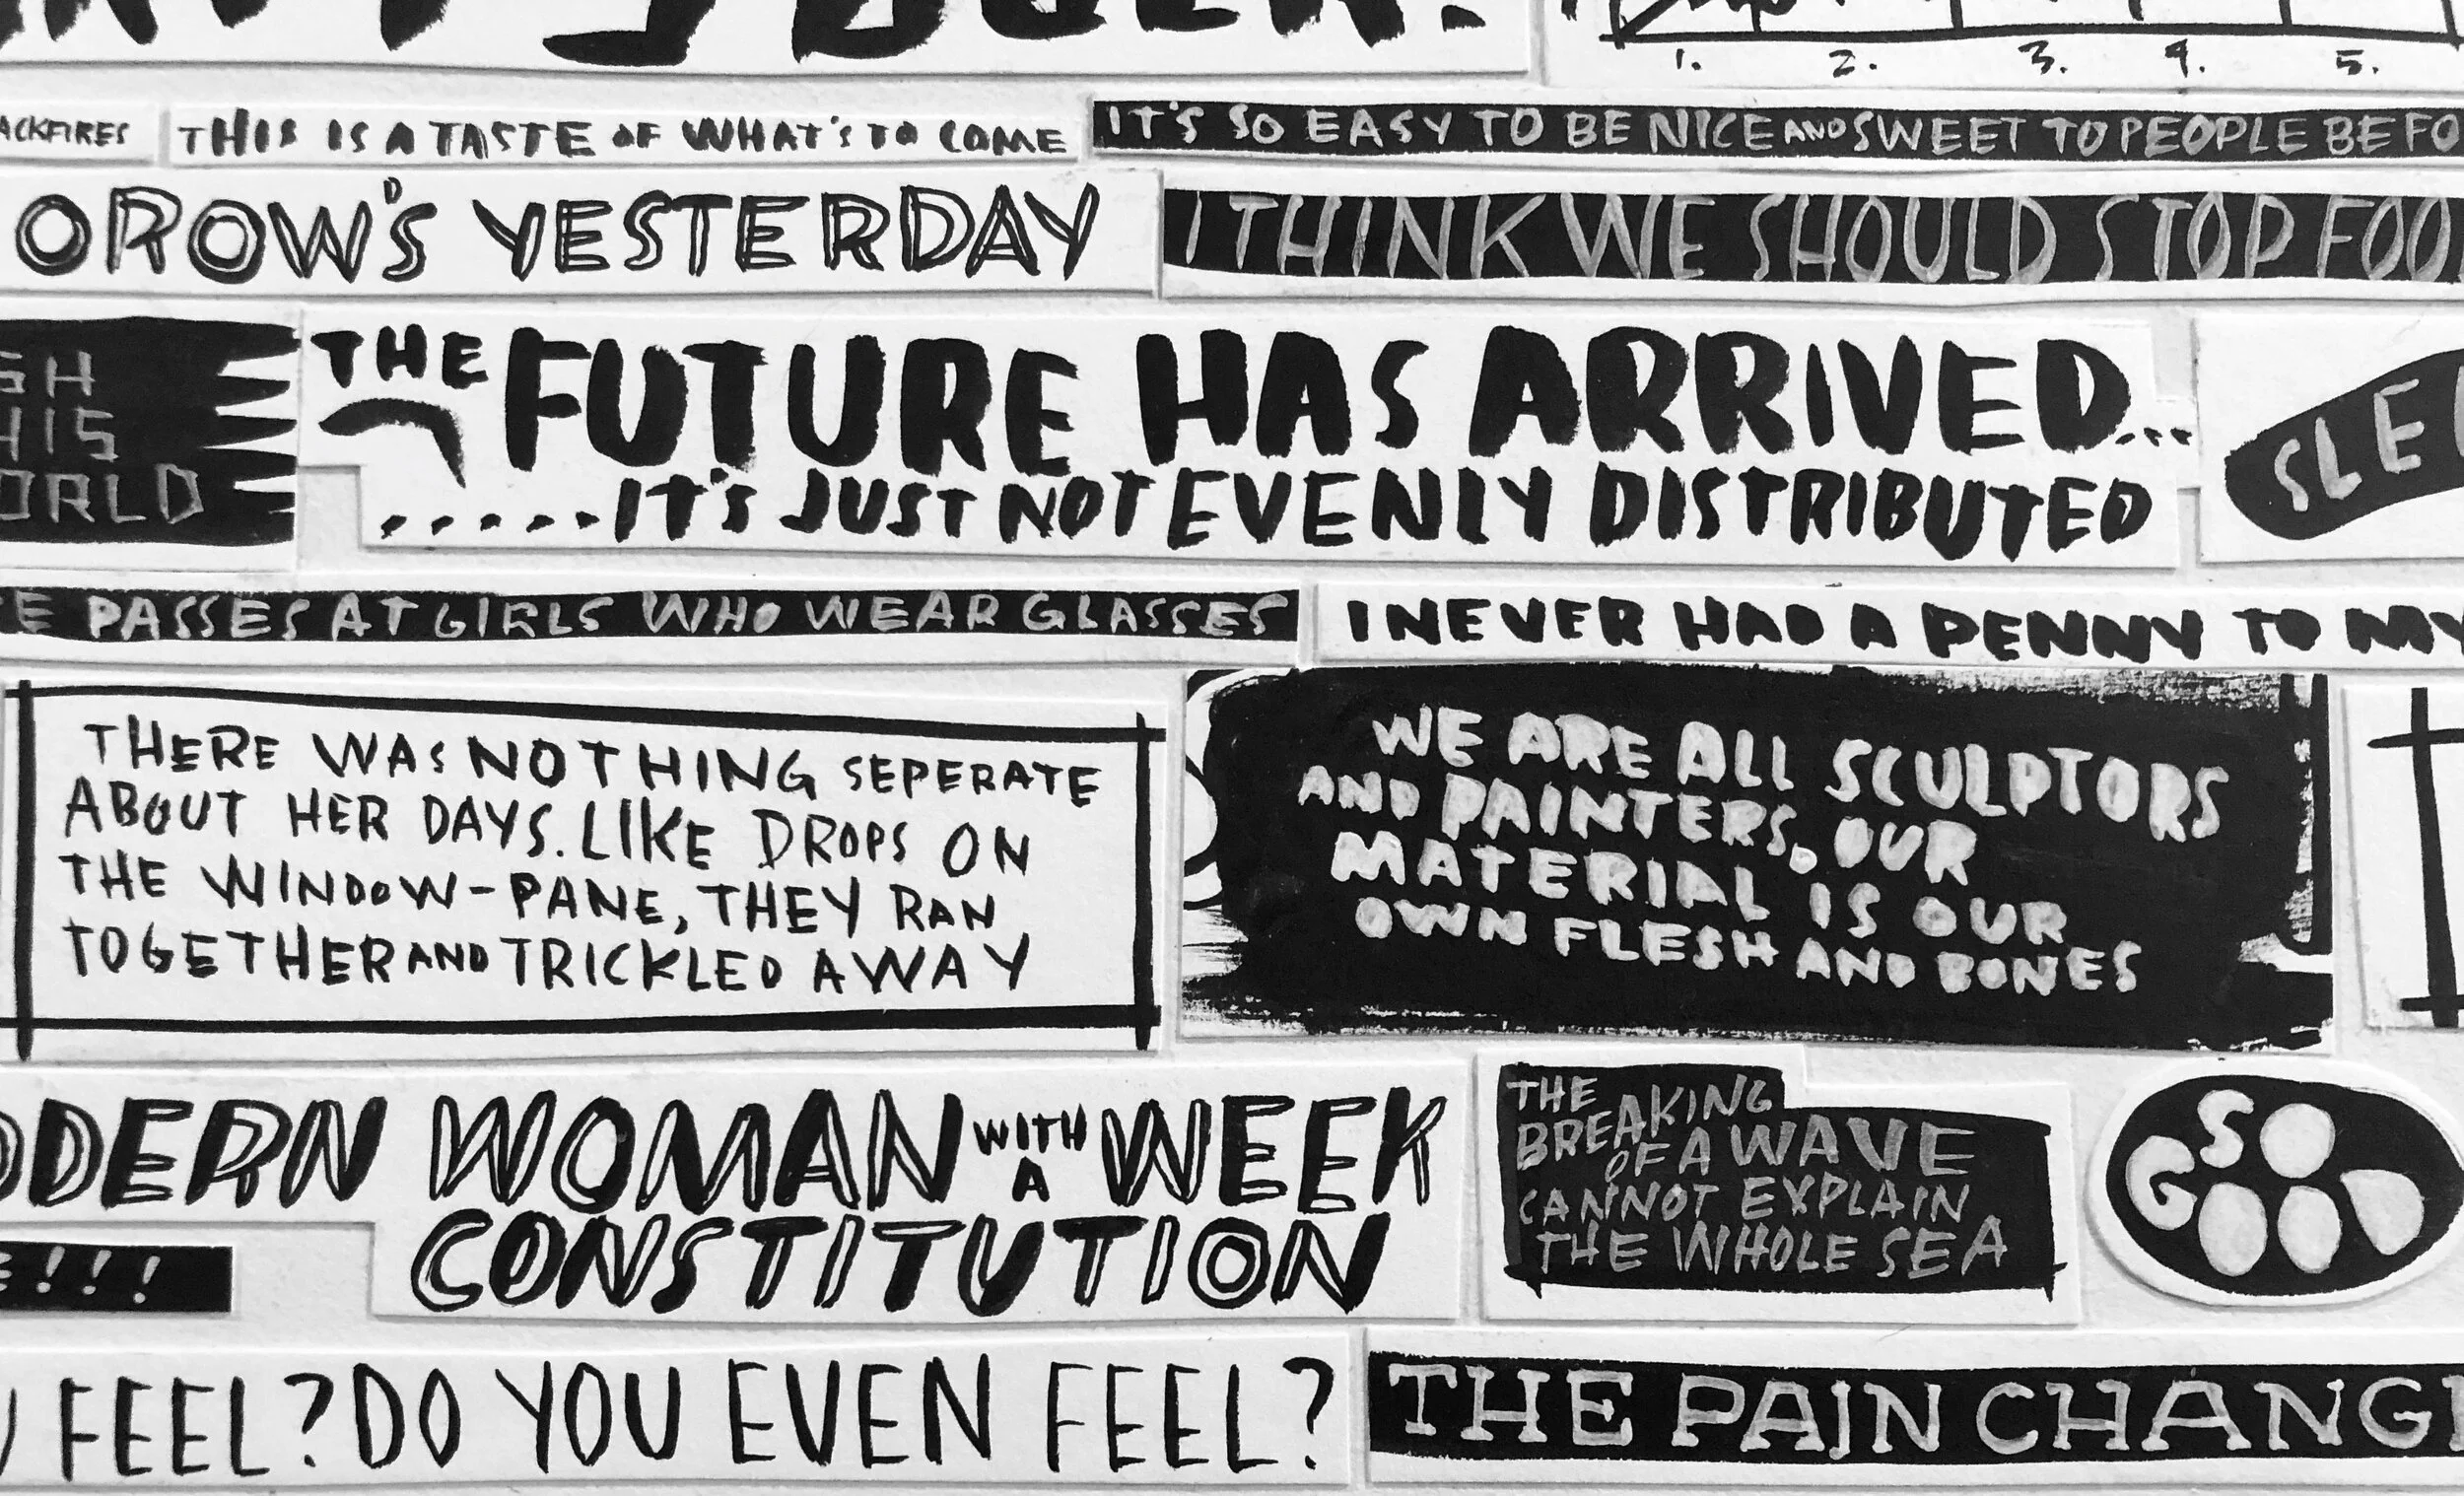 1. 2. 3. 4. 5.
ACKFIRES
THIS IS A TASTE OF WHAT'S TO COME
IT'S SO EASY TO BE NICE AND SWEET TO PEOPLE BEFO
OROW'DS YESTERDAY
I THINK WE SHOULD STOP FOO
SH
HIS
ORLD
THE FUTURE HAS ARRIVED...
.....IT'S JUST NOT EVENLY DISTRIBUTED
SLE
E PASSES AT GIRLS WHO WEAR GLASSES
I NEVER HAD A PENNY TO MY
THERE WAS NOTHING SEPERATE
ABOUT HER DAYS. LIKE DROPS ON
THE WINDOW-PANE, THEY RAN
TOGETHER AND TRICKLED AWAY
WE ARE ALL SCULPTORS
AND PAINTERS. OUR
MATERIAL IS OUR
OWN FLESH AND BONES
ODERN WOMAN WITH A WEEK
CONSTITUTION
THE
BREAKING
OF A WAVE
CANNOT EXPLAIN
THE WHOLE SEA
SO
GOOD
E!!!
FEEL? DO YOU EVEN FEEL?
THE PAIN CHANG